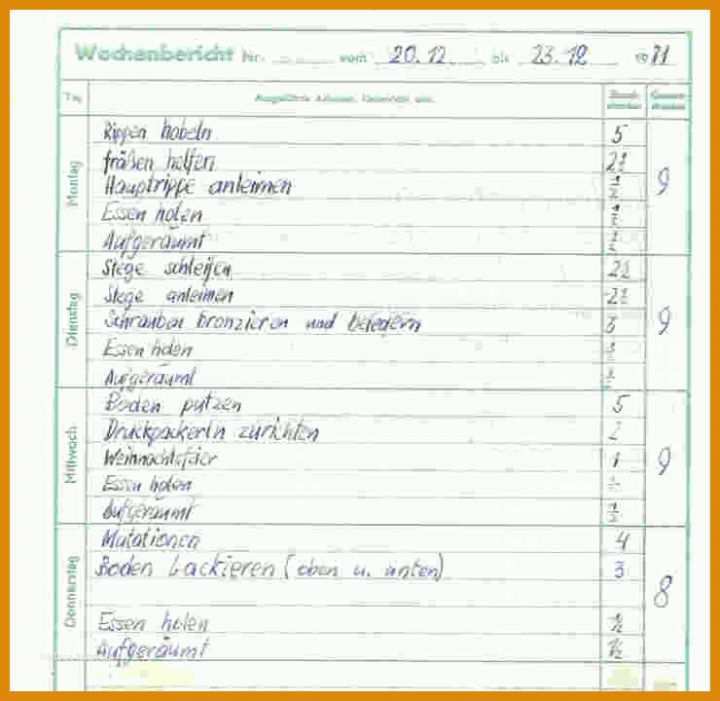 Wochenbericht Nr. vom 20.12. bis 23.12 1971
Tag Ausgeführte Arbeiten, Unterricht usw. Einzel-stunden Gesamt-stunden
Montag
Rippen hobeln 5
fräßen helfen 2½
Hauptrippe anleimen ½
Essen holen ½
Aufgeräumt ½
9
Dienstag
Stege schleifen 2½
Stege anleimen 2½
Schrauben bronzieren und beledern 3
Essen holen ½
Aufgeräumt ½
9
Mittwoch
Boden putzen 5
zurichten 2
Weihnachtsfeier 1
Essen holen ½
Aufgeräumt ½
9
Donnerstag
Mutationen 4
Boden Lackieren (oben u. unten) 3
Essen holen ½
Aufgeräumt ½
8